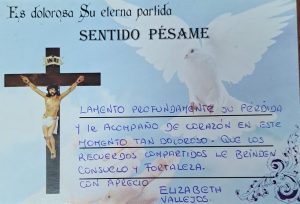 Es dolorosa Su eterna partida
SENTIDO PÉSAME
LAMENTO PROFUNDAMENTE SU PÉRDIDA
Y LE ACOMPAÑO DE CORAZÓN EN ESTE
MOMENTO TAN DOLOROSO. QUE LOS
RECUERDOS COMPARTIDOS LE BRINDEN
CONSUELO Y FORTALEZA.
CON APRECIO
ELIZABETH
VALLEJOS.